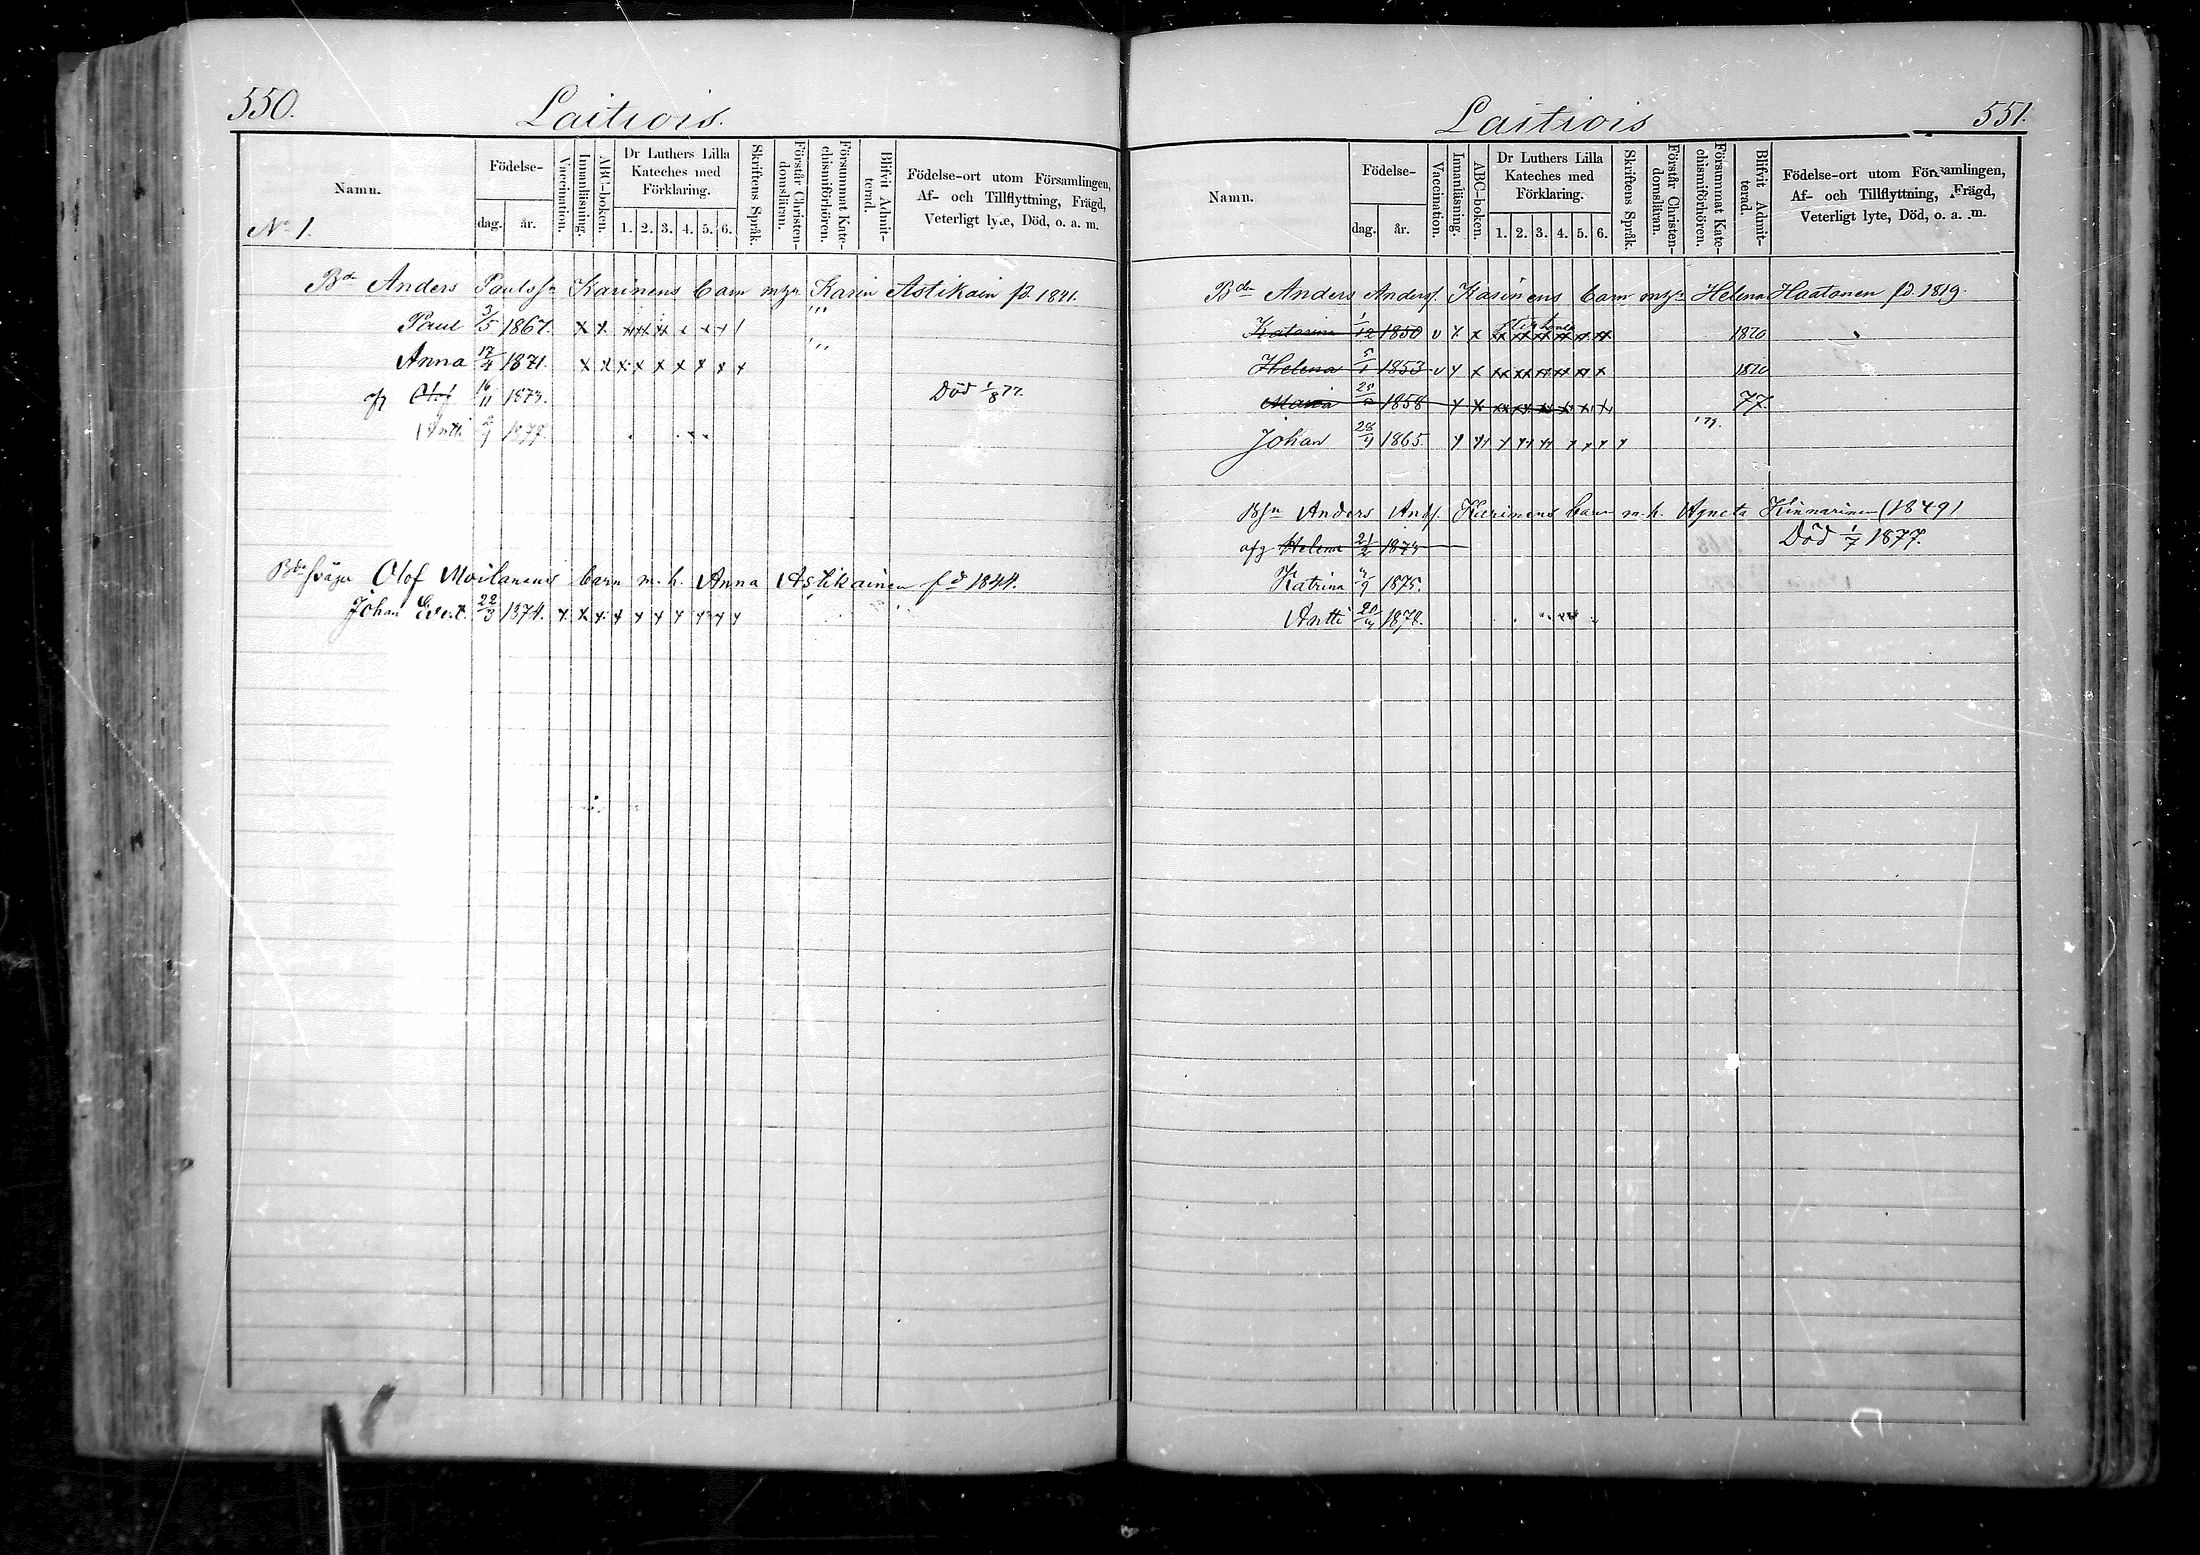 550.
Laitiois.
Namn.
Födelse-
dag. år.
Vaccination.
Innanläsning.
ABC-boken.
Dr Luthers Lilla Kateches med Förklaring.
1. 2. 3. 4. 5. 6.
Skriftens Språk.
Förstår Christendomsläran.
Försummat Katechismiförhören.
Blifvit Admitterad.
Födelse-ort utom Församlingen, Af- och Tillflyttning, Frägd, Veterligt lyte, Död, o. a. m.
No 1.
Bdn Anders Paulss. Karinens barn m. h. Karin Astikain fd. 1841.
Paul 3/5 1867. x x x x x x x x
Anna 17/4 1871. x x x x x x x x x
Olof 16/11 1873. Död 1/8 77.
Antti 1877.
Olof Moilanens barn m. h. Anna Astikainen fd 1844.
Johan 22/3 1874. x x x x x x x x x
551.
Laitiois
Namn.
Födelse-
dag. år.
Vaccination.
Innanläsning.
ABC-boken.
Dr Luthers Lilla Kateches med Förklaring.
1. 2. 3. 4. 5. 6.
Skriftens Språk.
Förstår Christendomsläran.
Försummat Katechismiförhören.
Blifvit Admitterad.
Födelse-ort utom Församlingen, Af- och Tillflyttning, Frägd, Veterligt lyte, Död, o. a. m.
Bdn Anders Anderss. Karinens barn Helena Haatanen fd. 1819.
Katarina 1/12 1850 v x x xx xx xx xx xx xx 1870
Helena 5/1 1853 v x x xx xx xx xx xx x 1870
Maria 1858 x x xx xx xx xx x x 77.
Johan 28/9 1865. x xx x xx xx x x x x
Anders And. Karinens barn m. h. Agneta Kinnarinen (1849)
Helena 21/2 1873 Död 1/7 1877.
Katrina 1875.
Antti 1878.